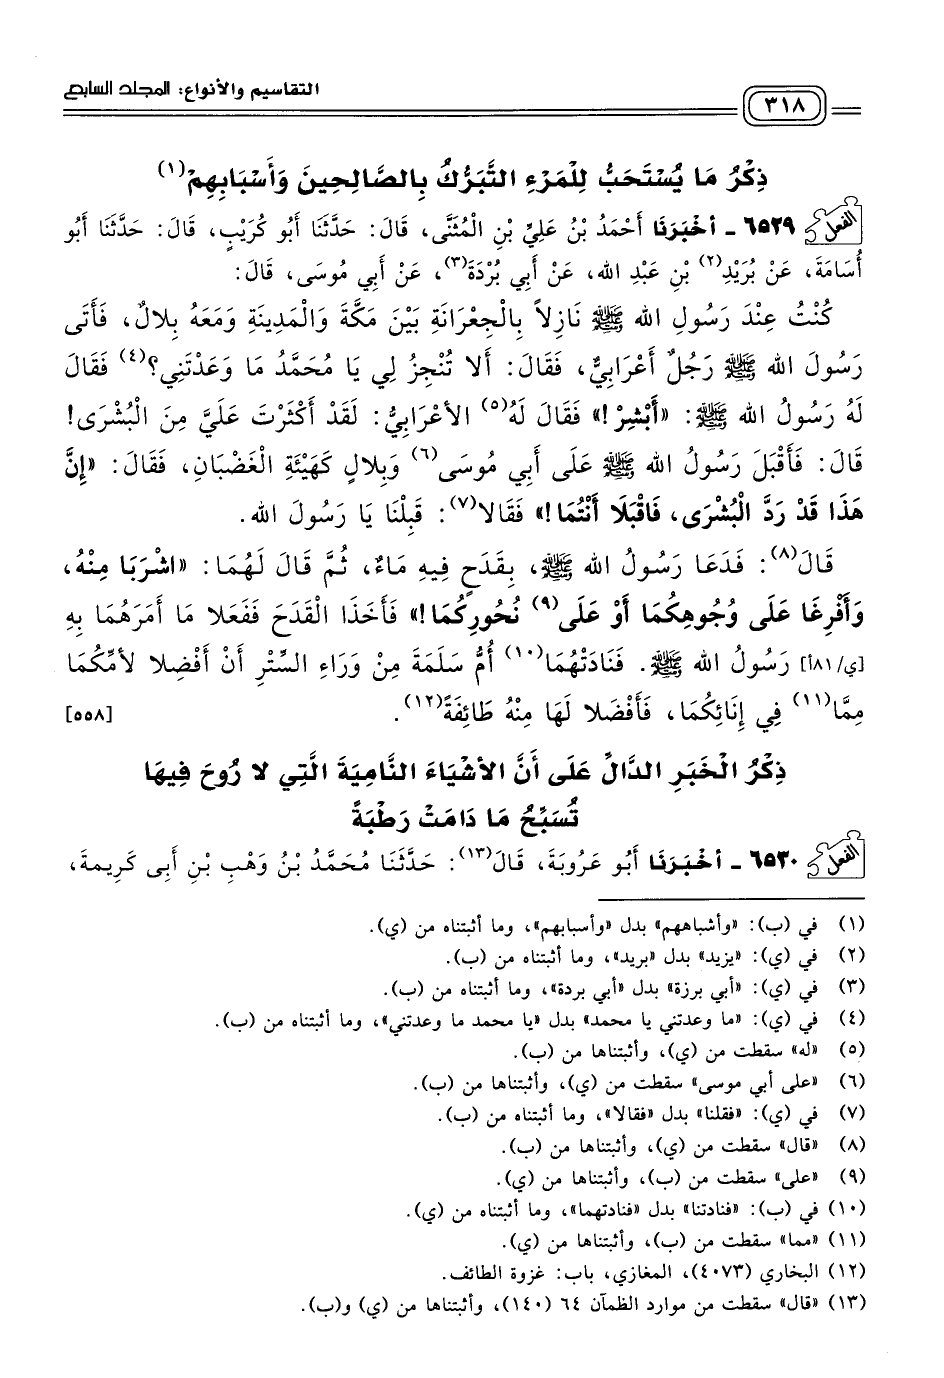 التقاسيم والأنواع: المجلد السابع
٣١٨
ذِكْرُ مَا يُسْتَحَبُّ لِلْمَرْءِ التَّبَرُّكُ بِالصَّالِحِينَ وَأَسْبَابِهِمْ(١)
الفعل ٦٥٢٩ ـ أخْبَرَنَا أَحْمَدُ بْنُ عَلِيِّ بْنِ الْمُثَنَّى، قَالَ: حَدَّثَنَا أَبُو كُرَيْبٍ، قَالَ: حَدَّثَنَا أَبُو
أُسَامَةَ، عَنْ بُرَيْدِ(٢) بْنِ عَبْدِ الله، عَنْ أَبِي بُرْدَةَ(٣)، عَنْ أَبِي مُوسَى، قَالَ:
كُنْتُ عِنْدَ رَسُولِ الله ﷺ نَازِلاً بِالْجِعْرَانَةِ بَيْنَ مَكَّةَ وَالْمَدِينَةِ وَمَعَهُ بِلالٌ، فَأَتَى
رَسُولَ الله ﷺ رَجُلٌ أَعْرَابِيٌّ، فَقَالَ: أَلا تُنْجِزُ لِي يَا مُحَمَّدُ مَا وَعَدْتَنِي؟(٤) فَقَالَ
لَهُ رَسُولُ الله ﷺ: «أَبْشِرْ!» فَقَالَ لَهُ(٥) الأعْرَابِيُّ: لَقَدْ أَكْثَرْتَ عَلَيَّ مِنَ الْبُشْرَى!
قَالَ: فَأَقْبَلَ رَسُولُ الله ﷺ عَلَى أَبِي مُوسَى(٦) وَبِلالٍ كَهَيْئَةِ الْغَضْبَانِ، فَقَالَ: «إِنَّ
هَذَا قَدْ رَدَّ الْبُشْرَى، فَاقْبَلَا أَنْتُمَا!» فَقَالا(٧): قَبِلْنَا يَا رَسُولَ الله.
قَالَ(٨): فَدَعَا رَسُولُ الله ﷺ، بِقَدَحٍ فِيهِ مَاءٌ، ثُمَّ قَالَ لَهُمَا: «اشْرَبَا مِنْهُ،
وَأَفْرِغَا عَلَى وُجُوهِكُمَا أَوْ عَلَى(٩) نُحُورِكُمَا!» فَأَخَذَا الْقَدَحَ فَفَعَلا مَا أَمَرَهُمَا بِهِ
[ي/٨١أ] رَسُولُ الله ﷺ. فَنَادَتْهُمَا(١٠) أُمُّ سَلَمَةَ مِنْ وَرَاءِ السِّتْرِ أَنْ أَفْضِلا لأُمِّكُمَا
مِمَّا(١١) فِي إِنَائِكُمَا، فَأَفْضَلا لَهَا مِنْهُ طَائِفَةً(١٢). [٥٥٨]
ذِكْرُ الْخَبَرِ الدَّالِّ عَلَى أَنَّ الأشْيَاءَ النَّامِيَةَ الَّتِي لا رُوحَ فِيهَا
تُسَبِّحُ مَا دَامَتْ رَطْبَةً
الفعل ٦٥٣٠ ـ أخْبَرَنَا أَبُو عَرُوبَةَ، قَالَ(١٣): حَدَّثَنَا مُحَمَّدُ بْنُ وَهْبِ بْنِ أَبِي كَرِيمةَ،
(١) في (ب): «وأشباههم» بدل «وأسبابهم»، وما أثبتناه من (ي).
(٢) في (ي): «يزيد» بدل «بريد»، وما أثبتناه من (ب).
(٣) في (ي): «أبي برزة» بدل «أبي بردة»، وما أثبتناه من (ب).
(٤) في (ي): «ما وعدتني يا محمد» بدل «يا محمد ما وعدتني»، وما أثبتناه من (ب).
(٥) «له» سقطت من (ي)، وأثبتناها من (ب).
(٦) «على أبي موسى» سقطت من (ي)، وأثبتناها من (ب).
(٧) في (ي): «فقلنا» بدل «فقالا»، وما أثبتناه من (ب).
(٨) «قال» سقطت من (ي)، وأثبتناها من (ب).
(٩) «على» سقطت من (ب)، وأثبتناها من (ي).
(١٠) في (ب): «فنادتنا» بدل «فنادتهما»، وما أثبتناه من (ي).
(١١) «مما» سقطت من (ب)، وأثبتناها من (ي).
(١٢) البخاري (٤٠٧٣)، المغازي، باب: غزوة الطائف.
(١٣) «قال» سقطت من موارد الظمآن ٦٤ (١٤٠)، وأثبتناها من (ي) و(ب).